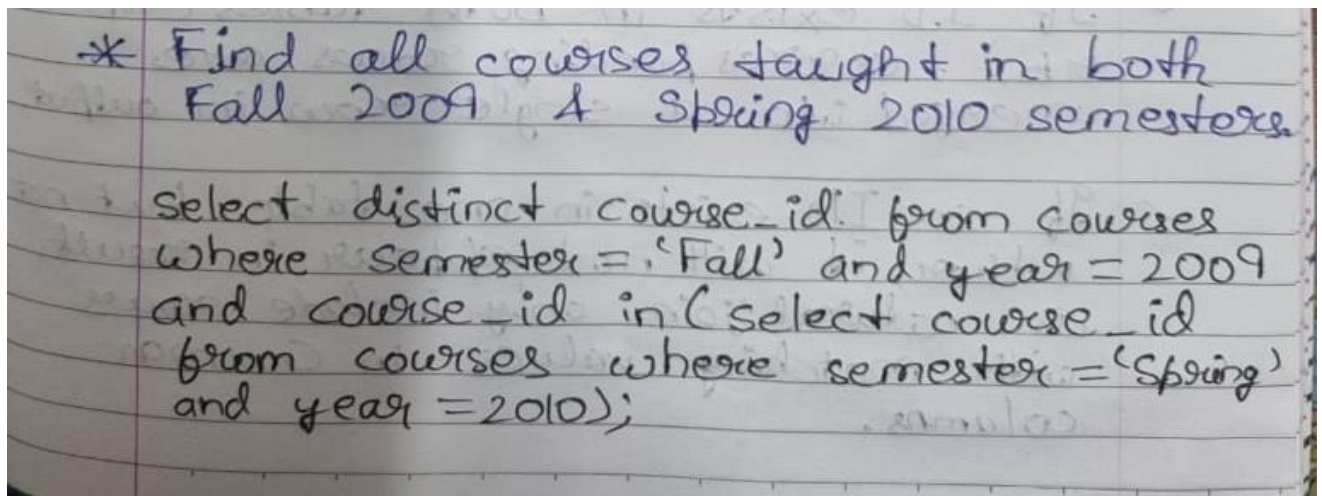 * Find all courses taught in both
Fall 2009 & Spring 2010 semesters.
select distinct course_id from courses
where semester = 'Fall' and year = 2009
and course_id in (select course_id
from courses where semester = 'Spring'
and year = 2010);